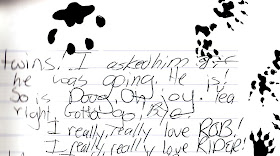 twins! I asked him if
he was going. He is!
So is Doug. Oh joy. Yea
right. Gotta go! Bye
I really, really love ROB!
I really, really love RIDER!